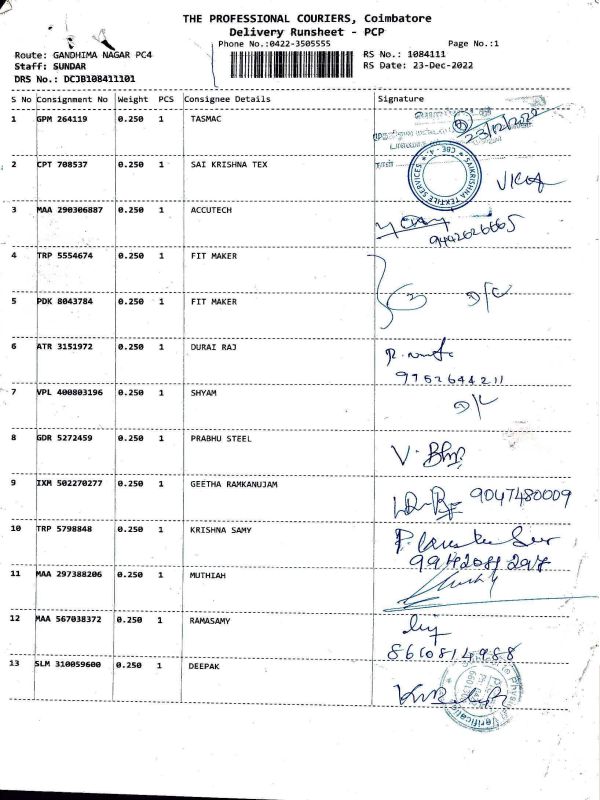 THE PROFESSIONAL COURIERS, Coimbatore
Delivery Runsheet - PCP
Phone No.:0422-3505555 Page No.:1
Route: GANDHIMA NAGAR PC4 RS No.: 1084111
Staff: SUNDAR RS Date: 23-Dec-2022
DRS No.: DCJB108411101
S No Consignment No Weight PCS Consignee Details Signature
1 GPM 264119 0.250 1 TASMAC
23/12/2022
2 CPT 708537 0.250 1 SAI KRISHNA TEX
SAIKRISHNA TEXTILE SERVICES ★ CBE - 4. ★
3 MAA 290306887 0.250 1 ACCUTECH
9442626665
4 TRP 5554674 0.250 1 FIT MAKER
5 PDK 8043784 0.250 1 FIT MAKER
6 ATR 3151972 0.250 1 DURAI RAJ
9752644211
7 VPL 400803196 0.250 1 SHYAM
8 GDR 5272459 0.250 1 PRABHU STEEL
9 IXM 502270277 0.250 1 GEETHA RAMKANUJAM
9047480009
10 TRP 5798848 0.250 1 KRISHNA SAMY
9942081 2917
11 MAA 297388206 0.250 1 MUTHIAH
12 MAA 567038372 0.250 1 RAMASAMY
8610814988
13 SLM 310059600 0.250 1 DEEPAK